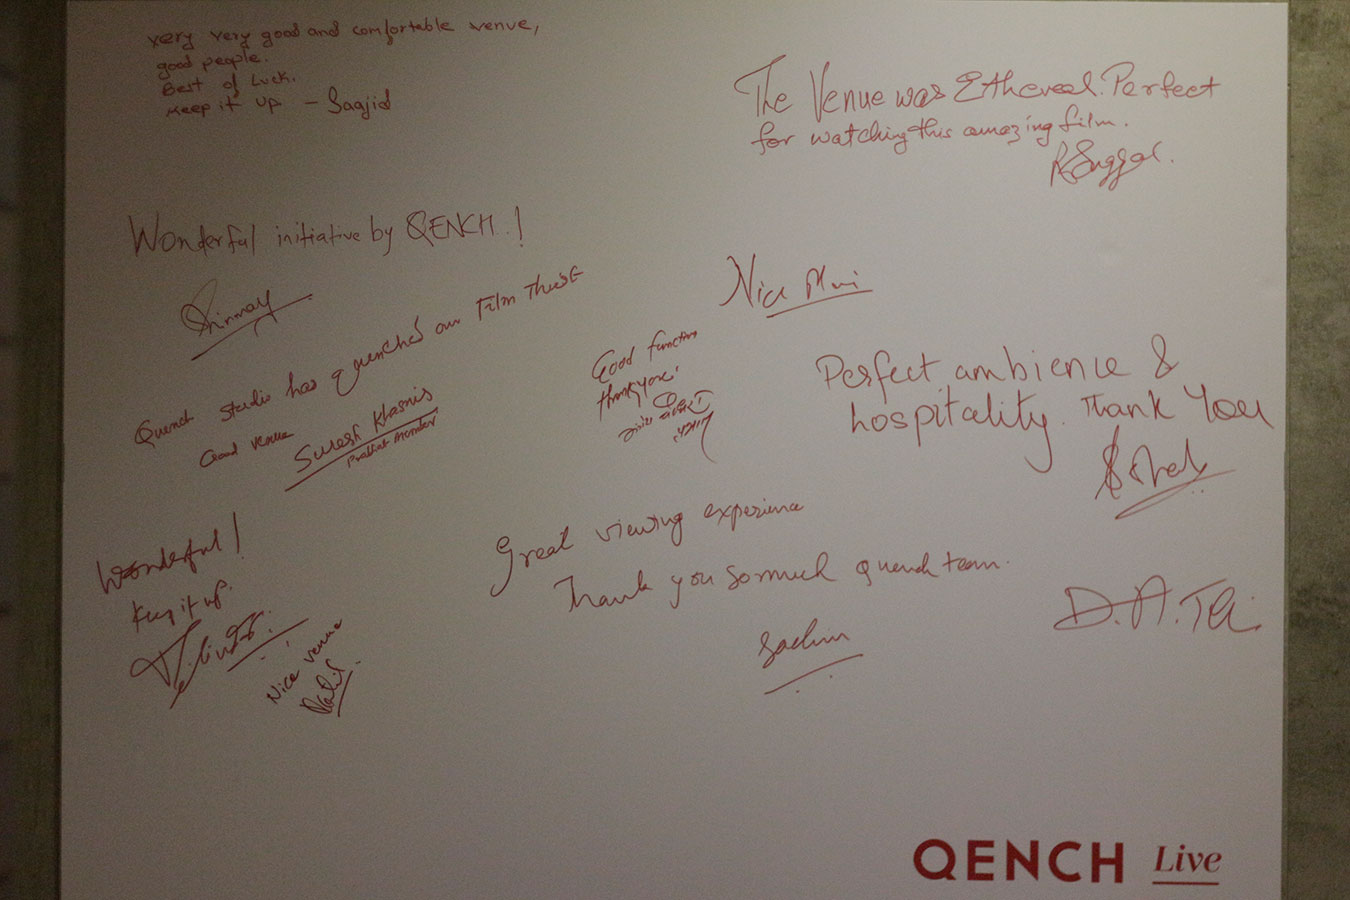 very very good and comfortable venue,
good people.
Best of Luck.
keep it up - Saajid
The Venue was Ethereal. Perfect
for watching this amazing film.
Wonderful initiative by QENCH!
Chinmay
Nice
Quench studio has quenched our Film Thirst
Good venue
Suresh Khasnis
Good function
thank you.
Perfect ambience &
hospitality. Thank You
Wonderful!
Keep it up.
Nice venue
Great viewing experience
Thank you so much quench team.
Sachin
QENCH Live